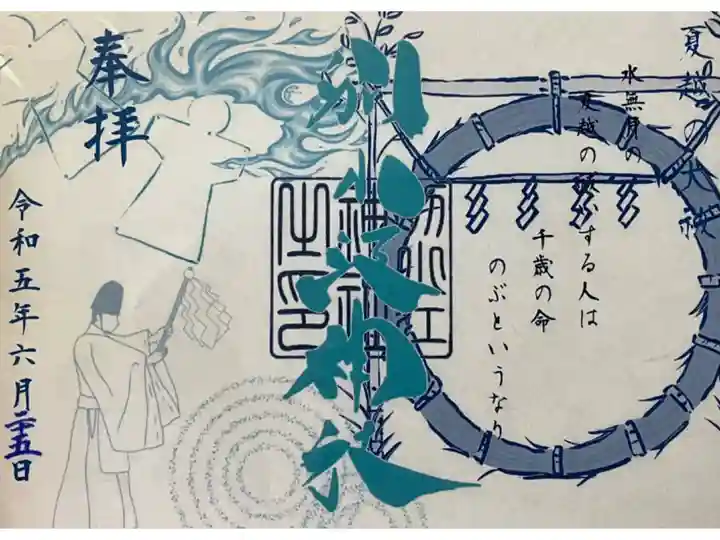 夏越の大祓
水無月の
夏越の祓する人は
千歳の命
のぶというなり
別小江神社
別小江
神社
之印
奉拝
令和五年六月二十五日